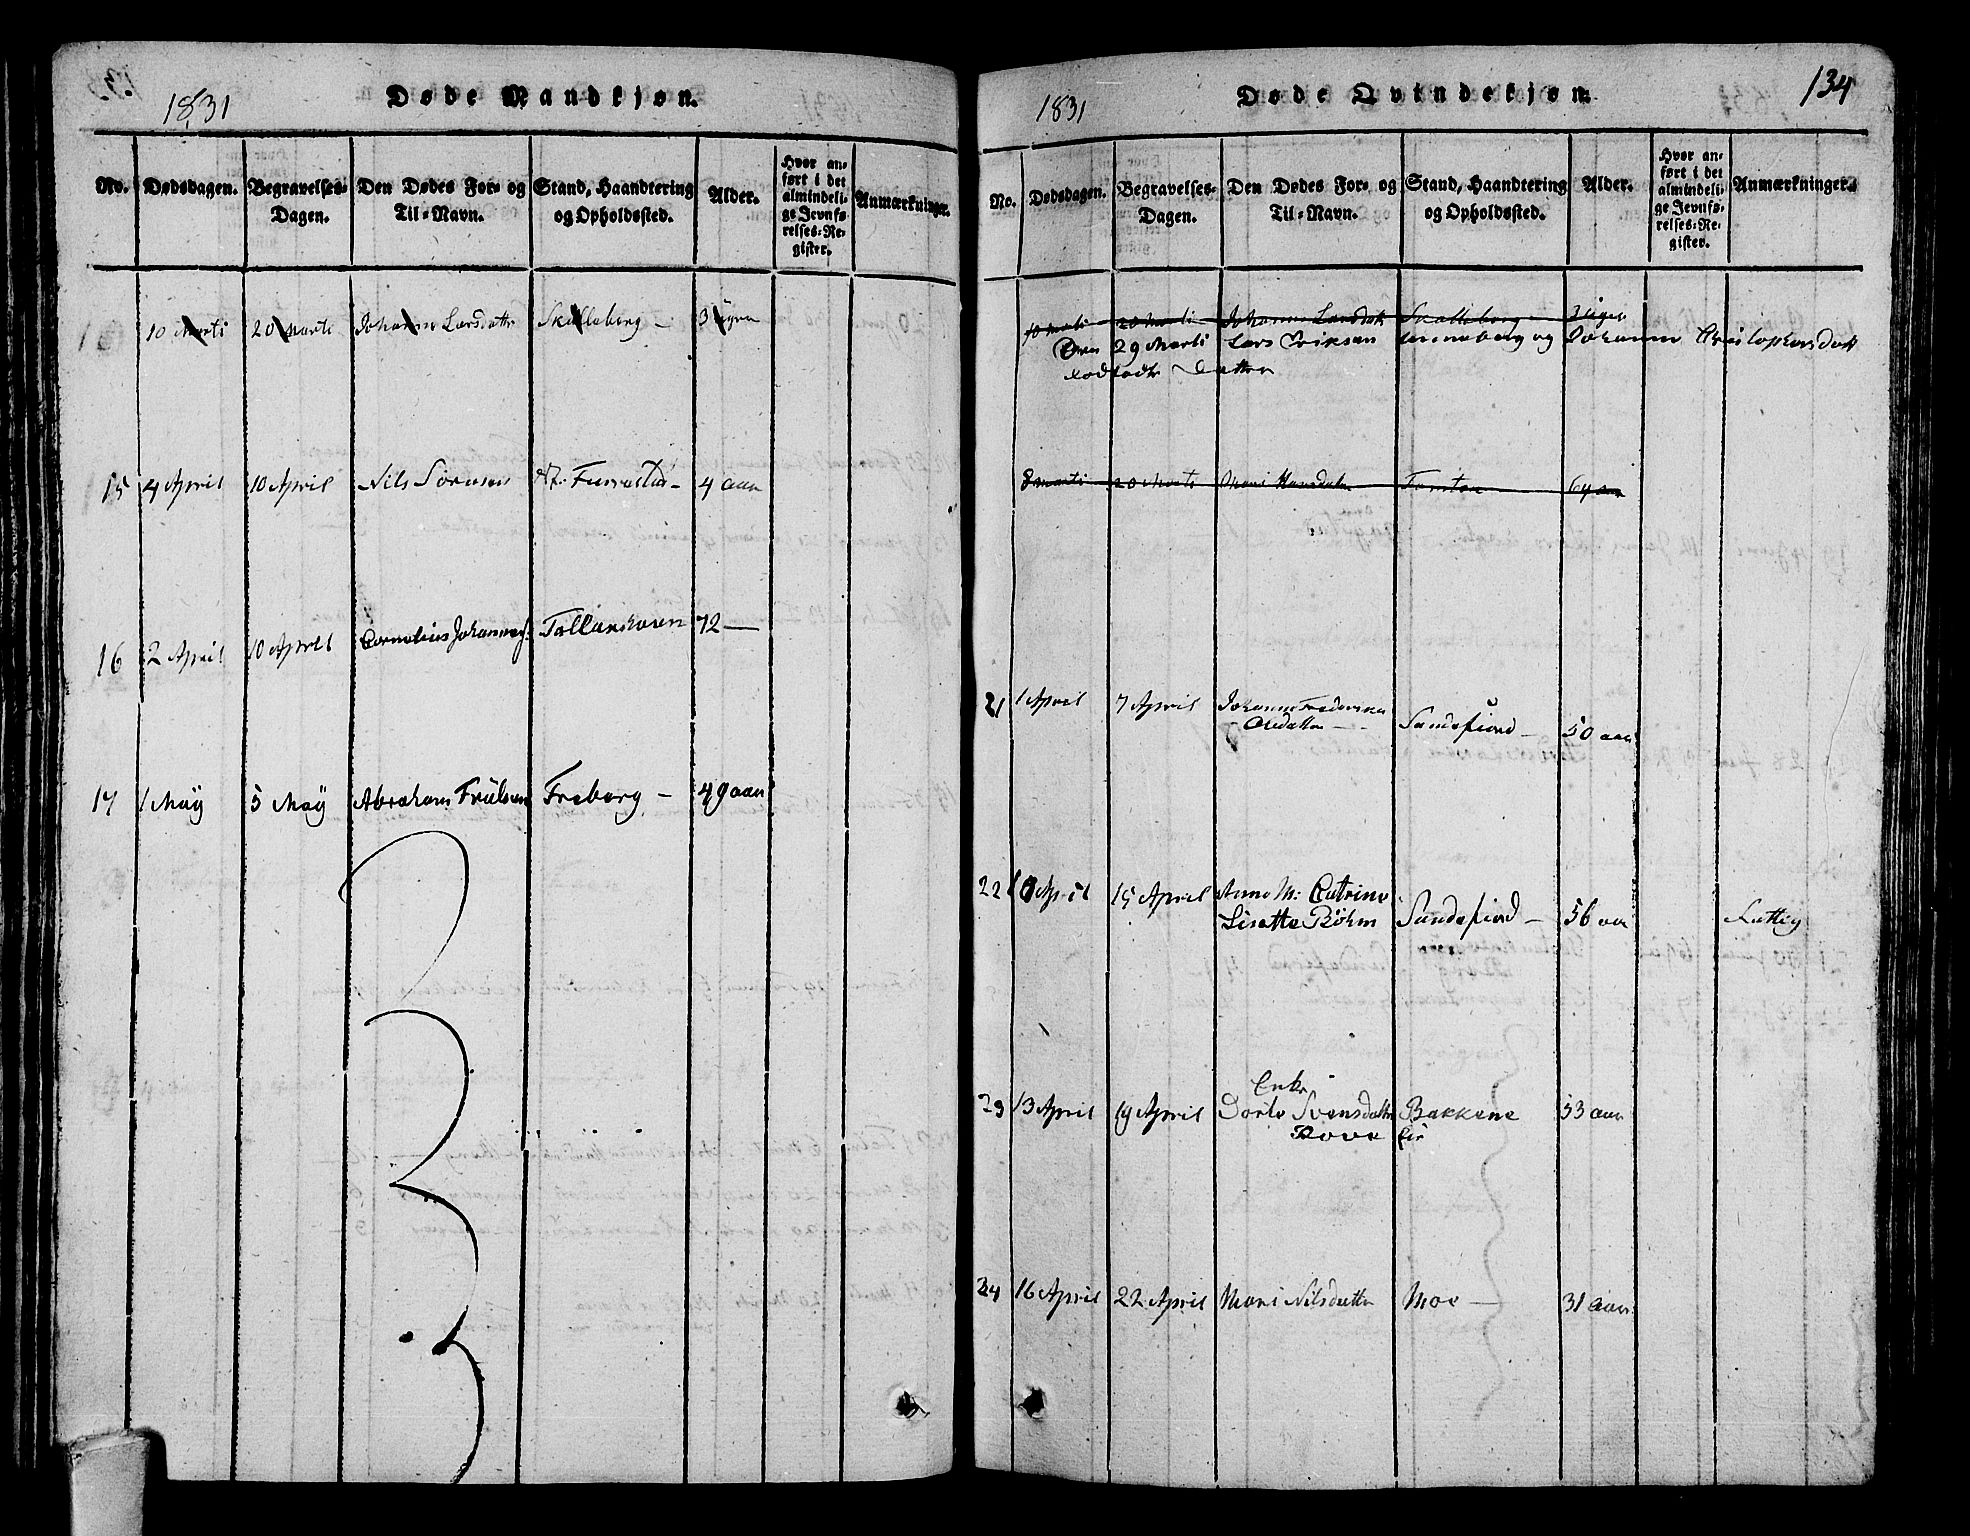 1831
Døde Mandkjøn.
No. Dødsdagen. Begravelses-Dagen. Den Dødes For- og Til-Navn. Stand, Haandtering og Opholdssted. Alder. Hvor anført i det almindelige Jevnførelses-Register. Anmærkninger.
10 Marti 20 Marti Johanne Larsdattr Skalleberg - 3 Ugen
15 4 April 10 April Nils Sörensen 4 aar
16 2 April 10 April Cornelius Johannes 72 —
17 1 Maÿ 5 Maÿ Abraham Freberg - 49 aar
1831
Døde Qvindekjøn.
134
No. Dødsdagen. Begravelses-Dagen. Den Dødes For- og Til-Navn. Stand, Haandtering og Opholdssted. Alder. Hvor anført i det almindelige Jevnførelses-Register. Anmærkninger.
10 Marti 20 Marti Johanne Larsdatr Skalleberg 3 Uger
Den 29 Marti Lars Eriksen og Johanne
dödfödte Datter
8 Marti 20 Marti Mari Hansdatr 64 aar
21 1 April 7 April Johanne
Oledatter - Sandefiord - 50 aar
22 10 April 15 April Anna M: Catrine
Lisatte Böhm Sandefiord - 56 aar
23 13 April 19 April Enke
Dorte Svensdatter Bakkene 53 aar
24 16 April 22 April Mari Nilsdattr Moe — 31 aar